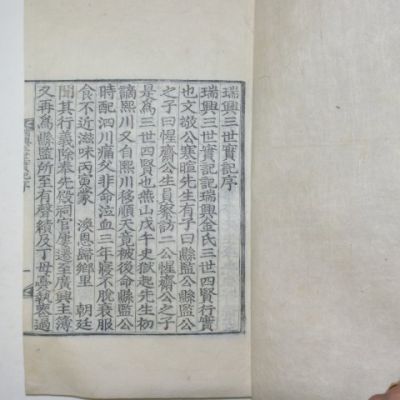 瑞興三世實記序
瑞興三世實記記瑞興金氏三世四賢行實
也文敬公寒暄先生有子曰縣監公縣監公
之子曰惺齋公生員參訪二公惺齋公之子
是爲三世四賢也燕山戊午史獄起先生初
謫熙川又自熙川移順天竟被後命縣監公
時配泗川痛父非命泣血三年寢不脫衰服
食不近滋味丙寅蒙 渙恩歸鄕里 朝廷
聞其行義除奉先殿祠官屢遷至廣興主簿
又再爲縣監所至有聲績及丁母憂執喪過